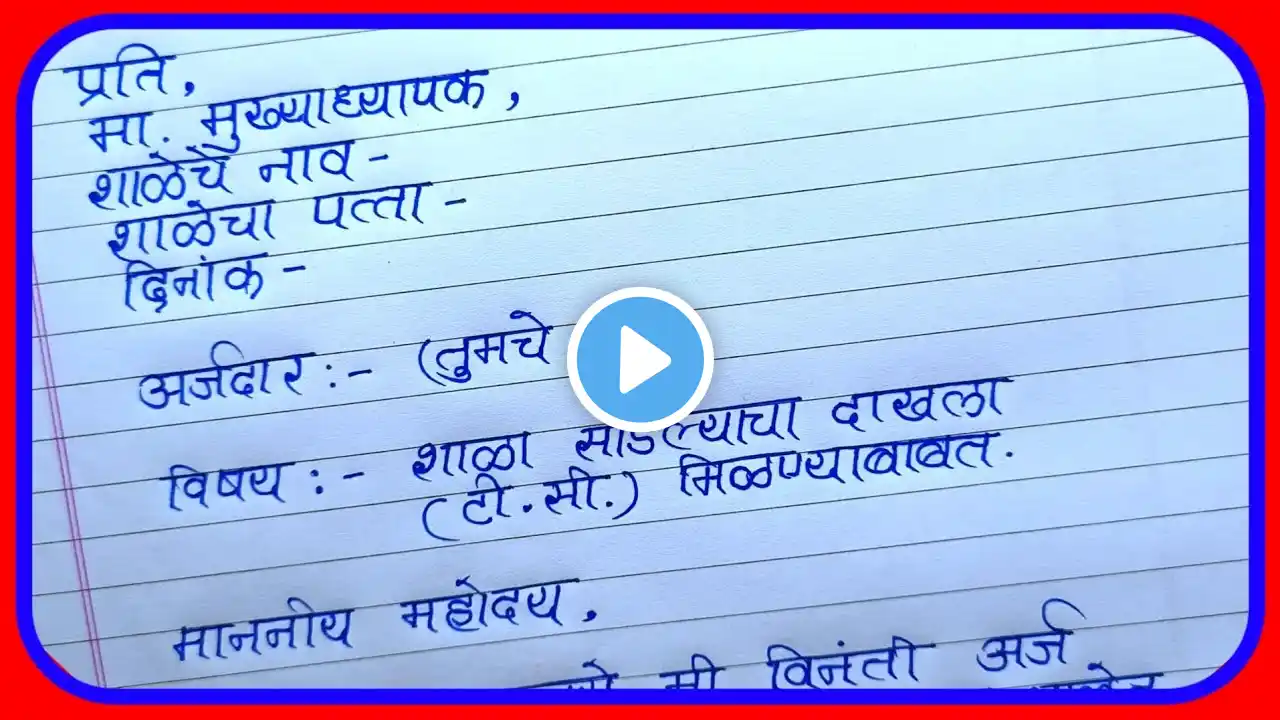 प्रति,
मा. मुख्याध्यापक,
शाळेचे नाव -
शाळेचा पत्ता -
दिनांक -
अर्जदार :- (तुमचे
विषय :- शाळा सोडल्याचा दाखला
(टी.सी.) मिळण्याबाबत.
माननीय महोदय,
मी विनंती अर्ज